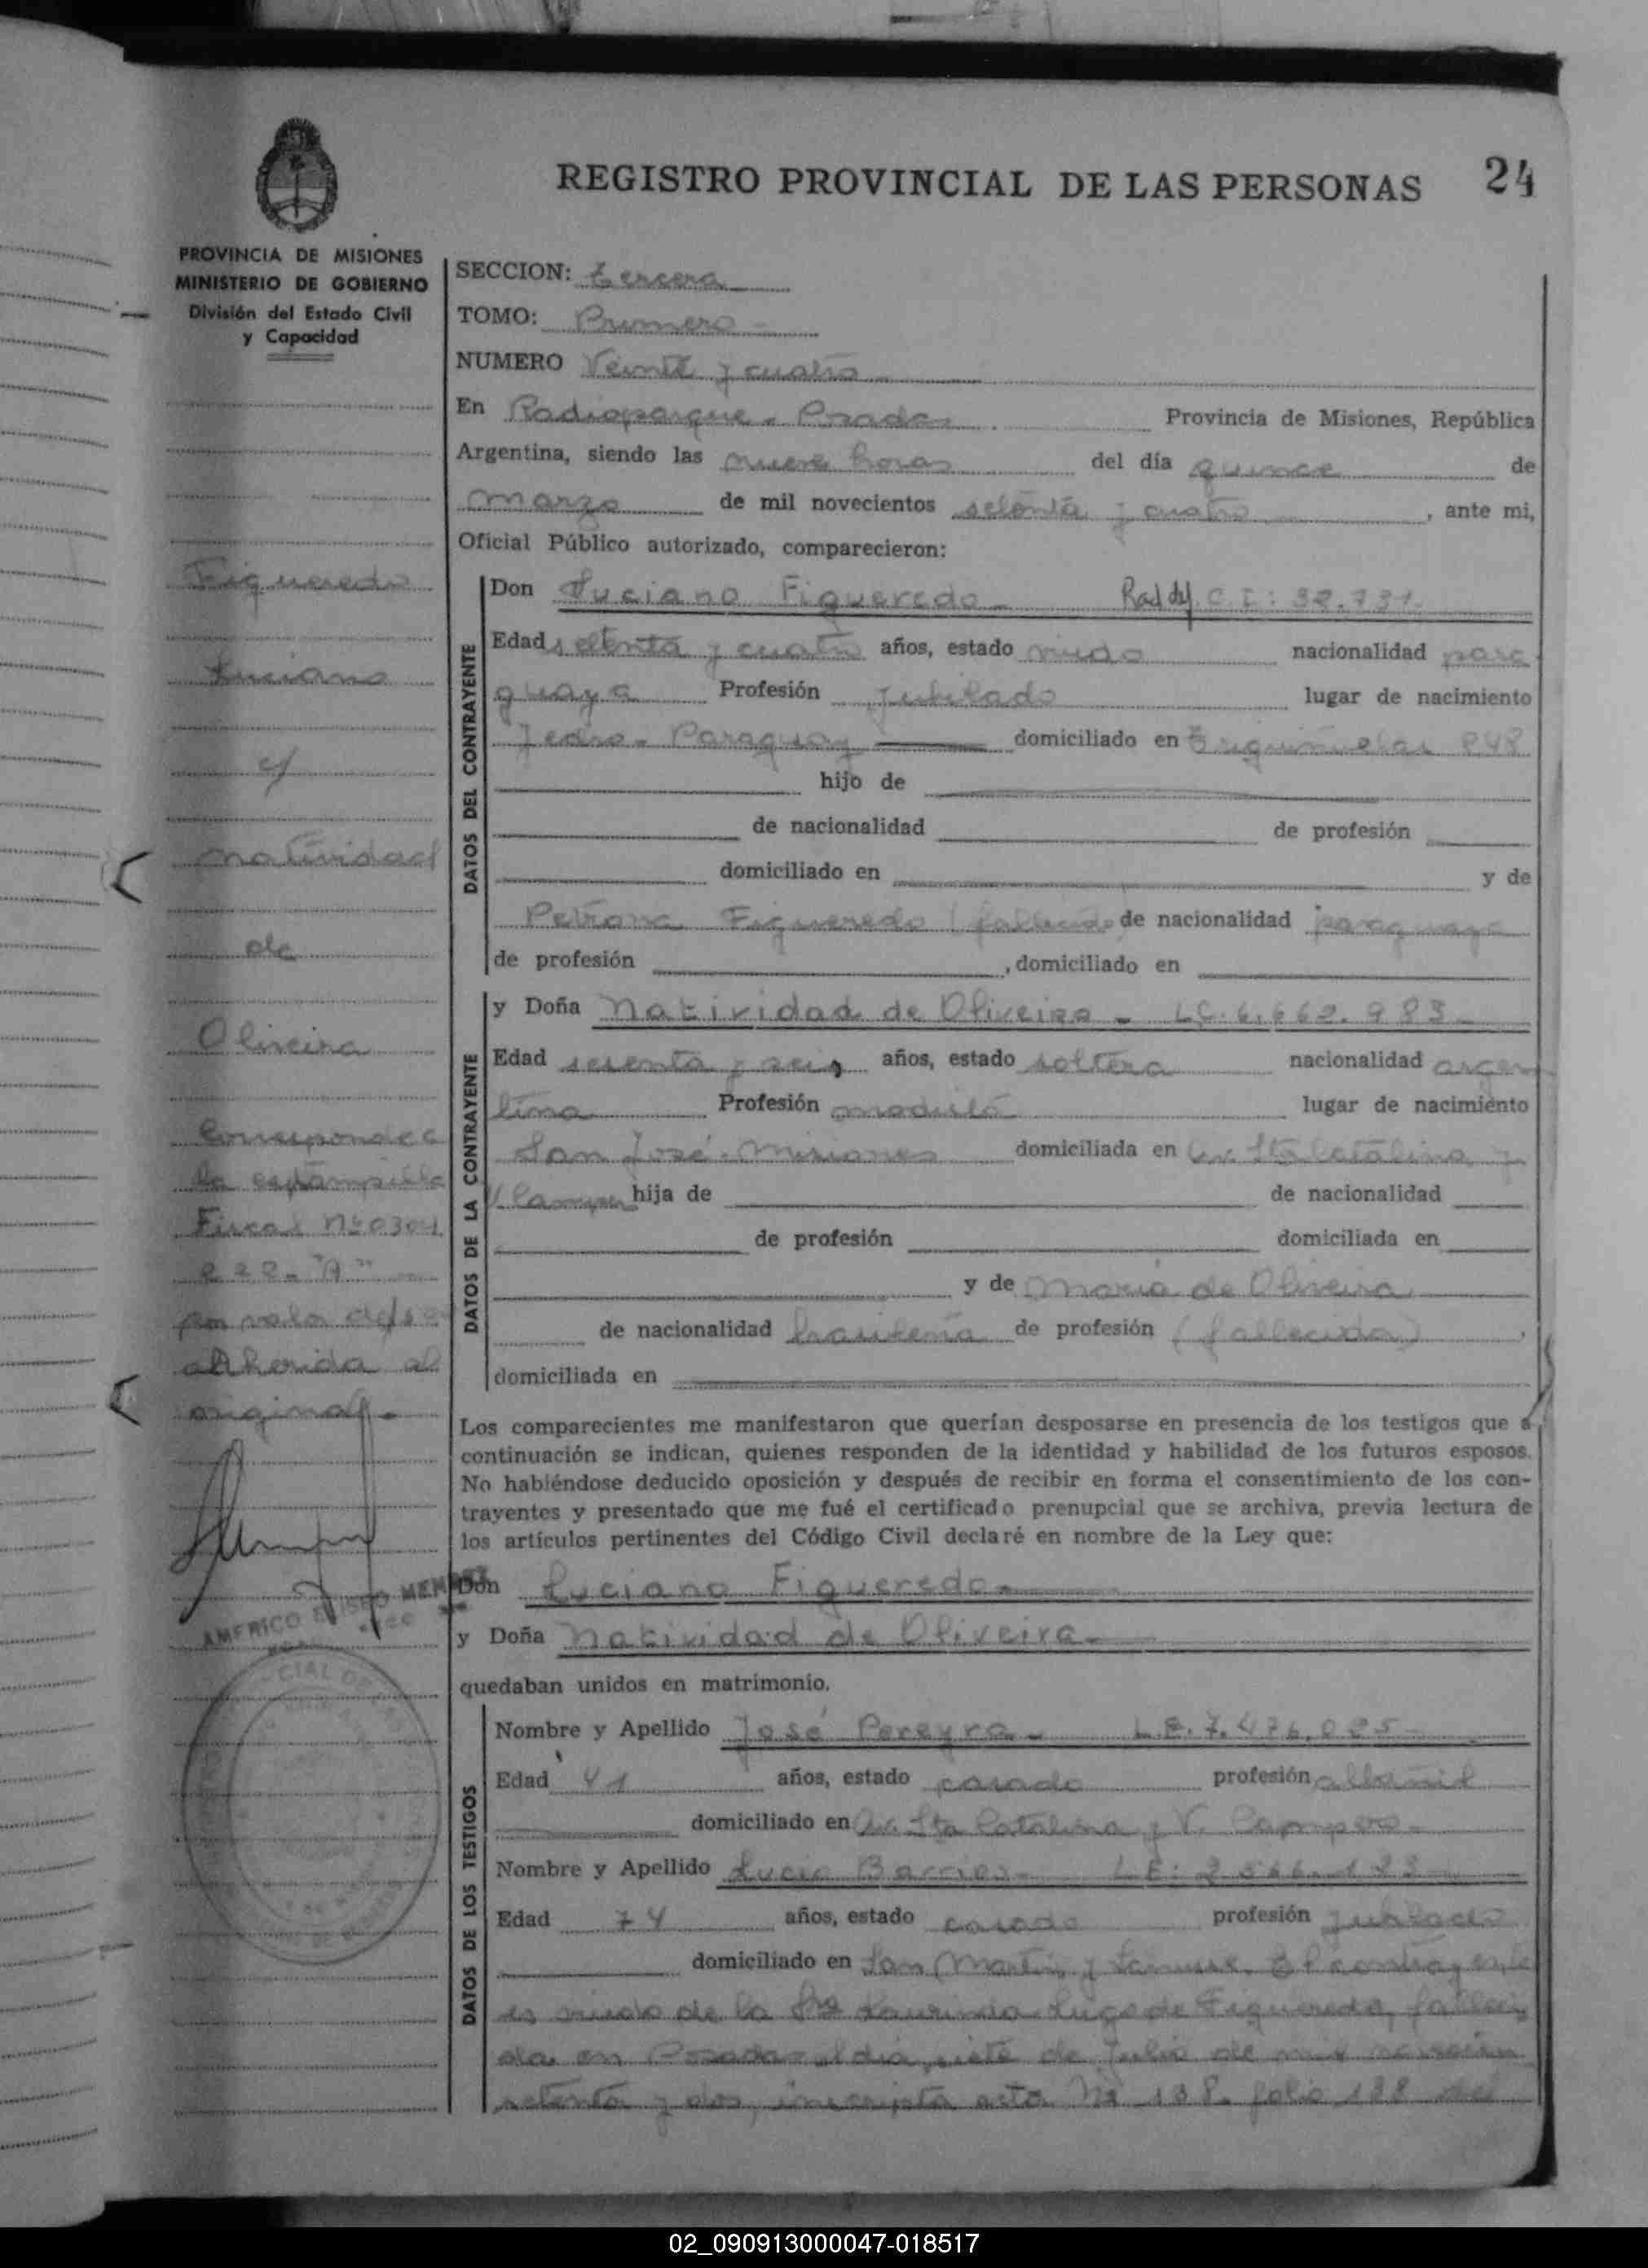 REGISTRO PROVINCIAL DE LAS PERSONAS 24
PROVINCIA DE MISIONES
MINISTERIO DE GOBIERNO
División del Estado Civil
y Capacidad
Figueredo
Luciano
c/
Natividad
de
Oliveira
Corresponde a
la estampilla
Fiscal Nº 0304
222 - "A"
por valor de
adherida al
original.-
AMERICO ELISEO MENDEZ
SECCION: tercera
TOMO: Primero
NUMERO Veinte y cuatro
En Radioparque - Posadas Provincia de Misiones, República
Argentina, siendo las nueve horas del día quince de
marzo de mil novecientos setenta y cuatro, ante mi,
Oficial Público autorizado, comparecieron:
DATOS DEL CONTRAYENTE
Don Luciano Figueredo C.I: 32.731.
Edad setenta y cuatro años, estado viudo nacionalidad para
guaya Profesión Jubilado lugar de nacimiento
Paraguay domiciliado en 848
hijo de
de nacionalidad de profesión
domiciliado en y de
Petrona Figueredo (fallecida) de nacionalidad paraguaya
de profesión , domiciliado en
DATOS DE LA CONTRAYENTE
y Doña Natividad de Oliveira - LC. 6.662.983
Edad sesenta y seis años, estado soltera nacionalidad argen
tina Profesión modista lugar de nacimiento
San José - Misiones domiciliada en Av. Sta Catalina y
V. Campero hija de de nacionalidad
de profesión domiciliada en
y de María de Oliveira
de nacionalidad brasileña de profesión (fallecida) ,
domiciliada en
Los comparecientes me manifestaron que querían desposarse en presencia de los testigos que a
continuación se indican, quienes responden de la identidad y habilidad de los futuros esposos.
No habiéndose deducido oposición y después de recibir en forma el consentimiento de los con-
trayentes y presentado que me fué el certificado prenupcial que se archiva, previa lectura de
los artículos pertinentes del Código Civil declaré en nombre de la Ley que:
Don Luciano Figueredo
y Doña Natividad de Oliveira
quedaban unidos en matrimonio.
DATOS DE LOS TESTIGOS
Nombre y Apellido José Pereyra - L.E. 7.476.025
Edad 41 años, estado casado profesión albañil
domiciliado en Av. Sta Catalina y V. Campero
Nombre y Apellido Lucio Barrios
Edad 74 años, estado casado profesión jubilado
domiciliado en San Martín y El contrayente
es viudo de la Sra Laurinda Lugo de Figueredo, falleci
da en Posadas el día siete de Julio de mil novecien
setenta y dos, inscripta acta Nº 188 folio 188 del
02_090913000047-018517